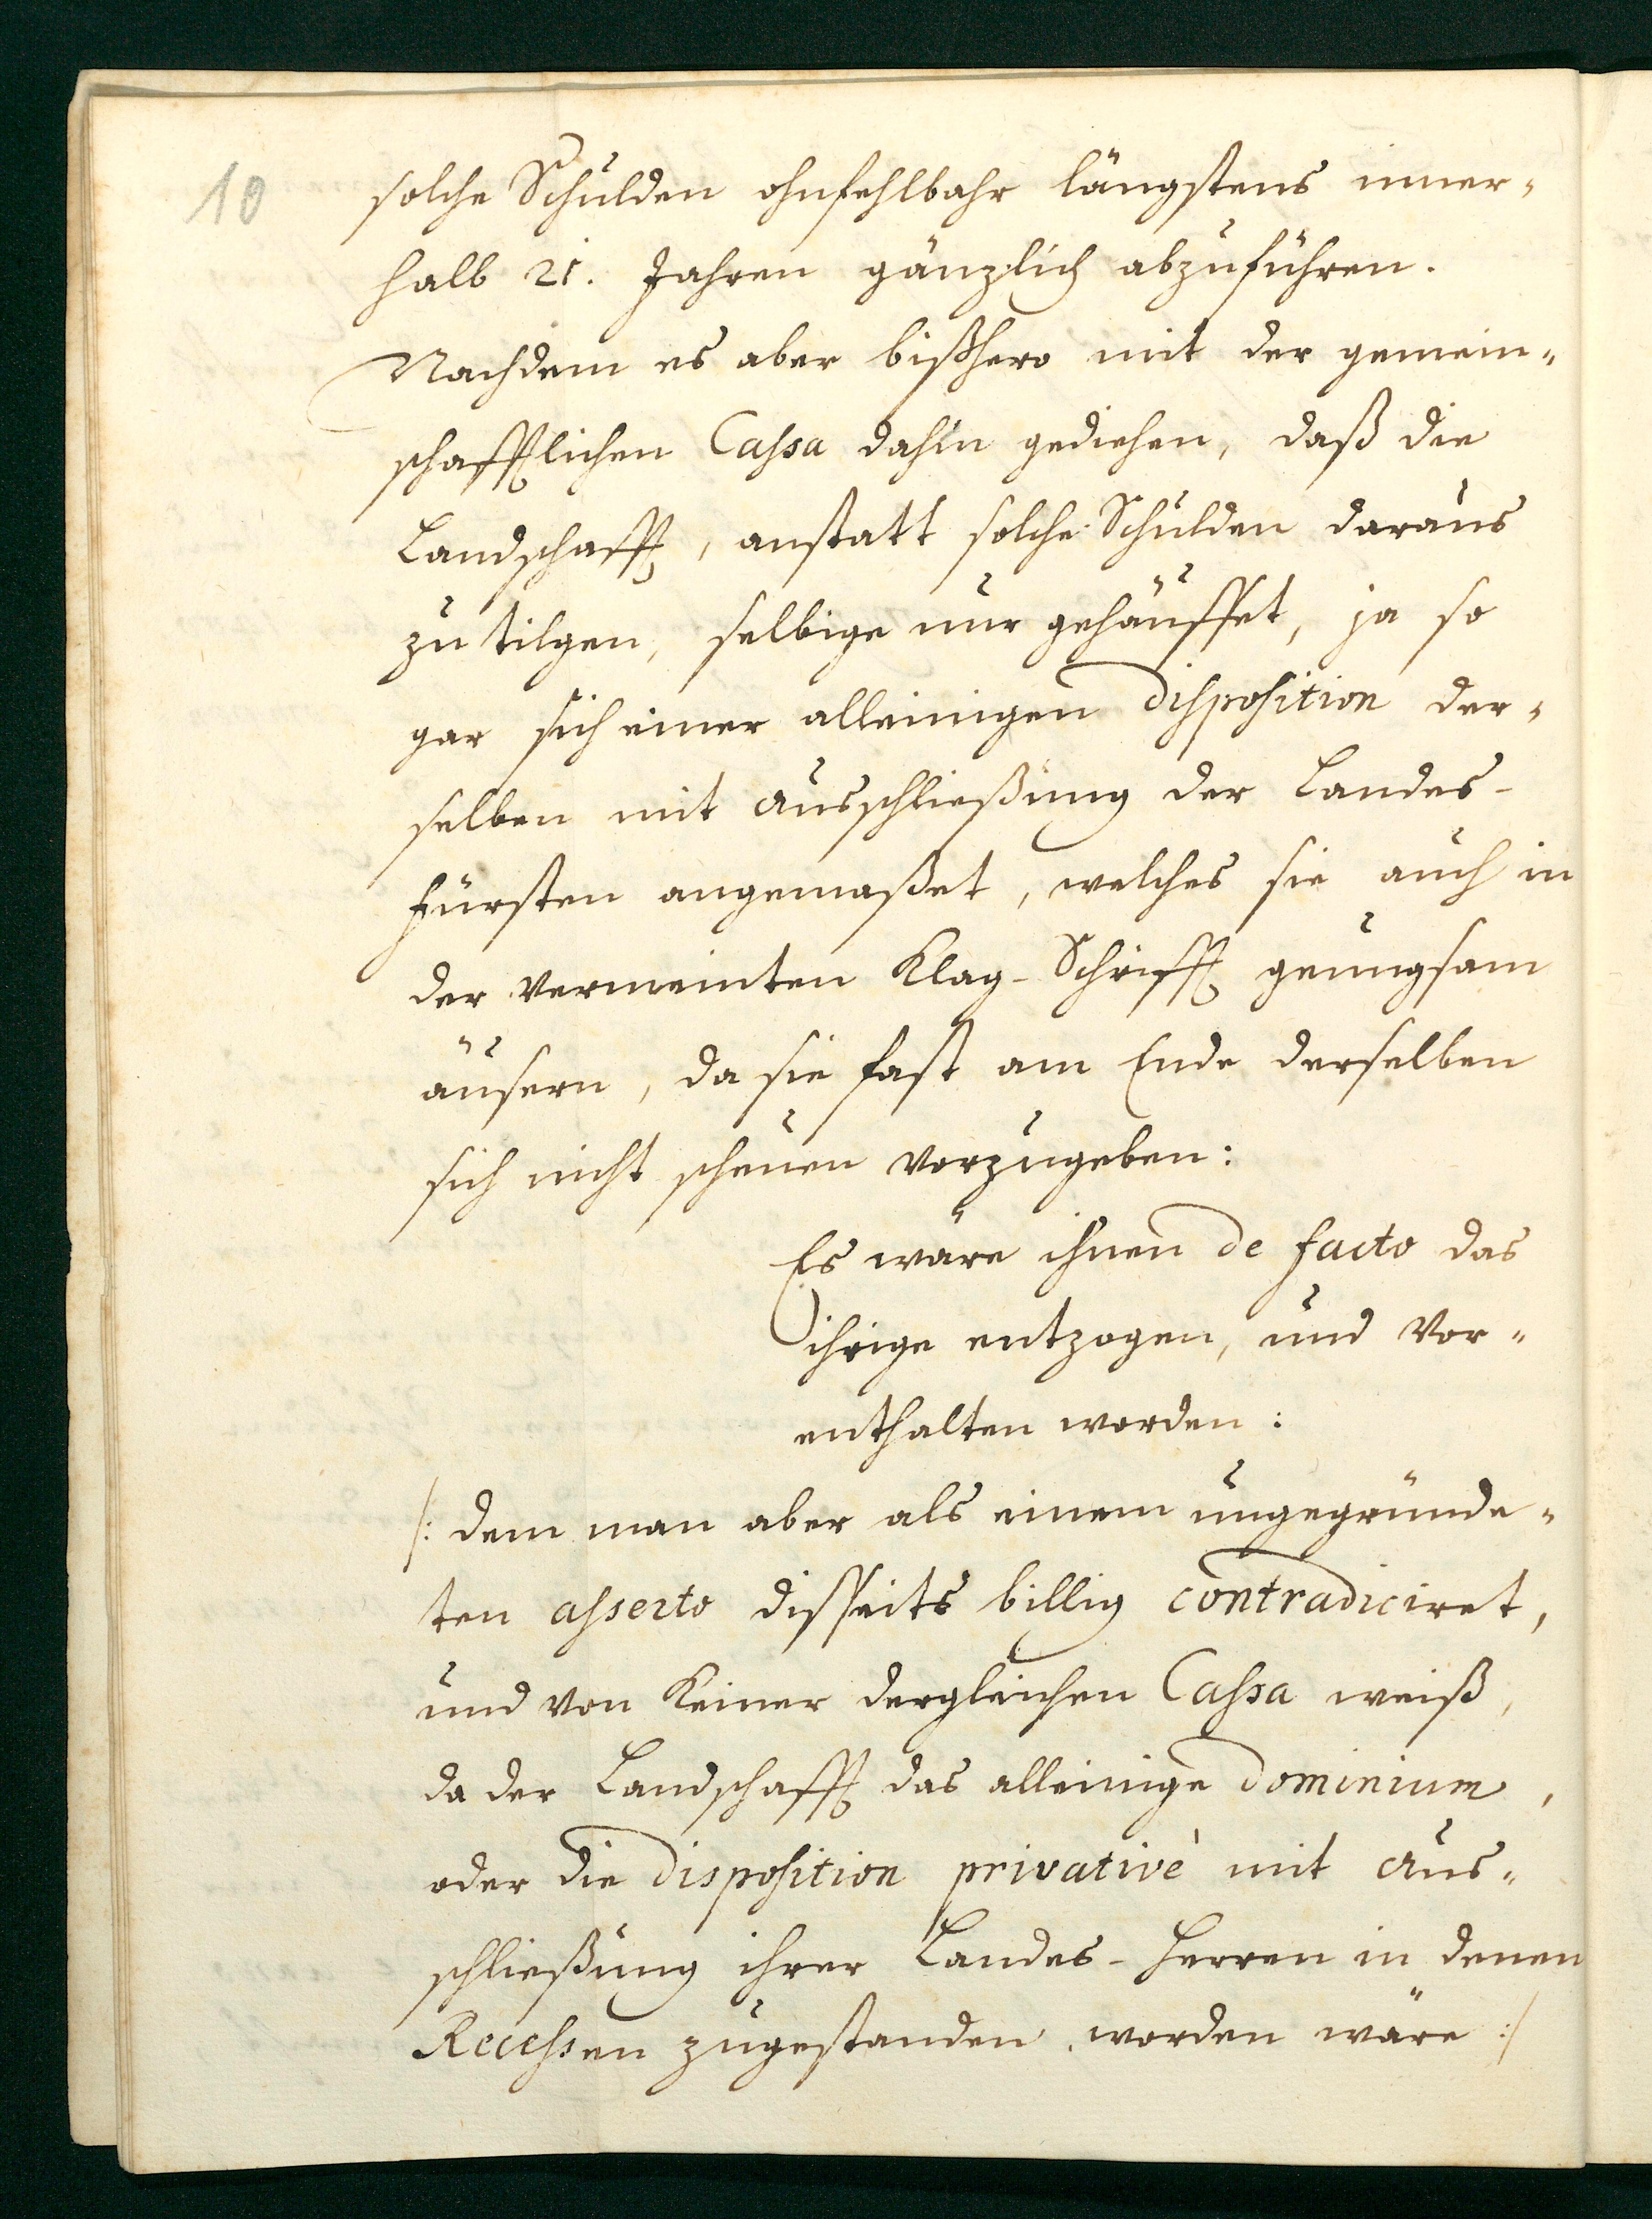 10
solche Schulden ohnfehlbahr längstens inner-
halb 21. Jahren gänzlich abzuführen.
Nachdem es aber bißhero mit der gemein-
schafftlichen Cassa dahin gediehen, daß die
Landschafft, anstatt solche Schulden daraus
zu tilgen, selbige nur gehäuffet, ja so
gar sich einer alleinigen disposition der-
selben mit Ausschließung der Landes-
Fürsten angemaßet, welches sie auch in
der vermeinten Klag-Schrifft genugsam
äusern, da sie fast am Ende derselben
sich nicht scheuen vorzugeben:
Es wäre ihnen de facto das
ihrige entzogen, und vor-
enthalten worden:
/: dem man aber als einem ungegründe-
ten asserto disseits billig contradiciret,
und von keiner dergleichen Cassa weiß,
da der Landschafft das alleinige dominium,
oder die disposition privativè mit Aus-
schließung ihrer Landes-Herren in denen
Recessen zugestanden worden wäre :/